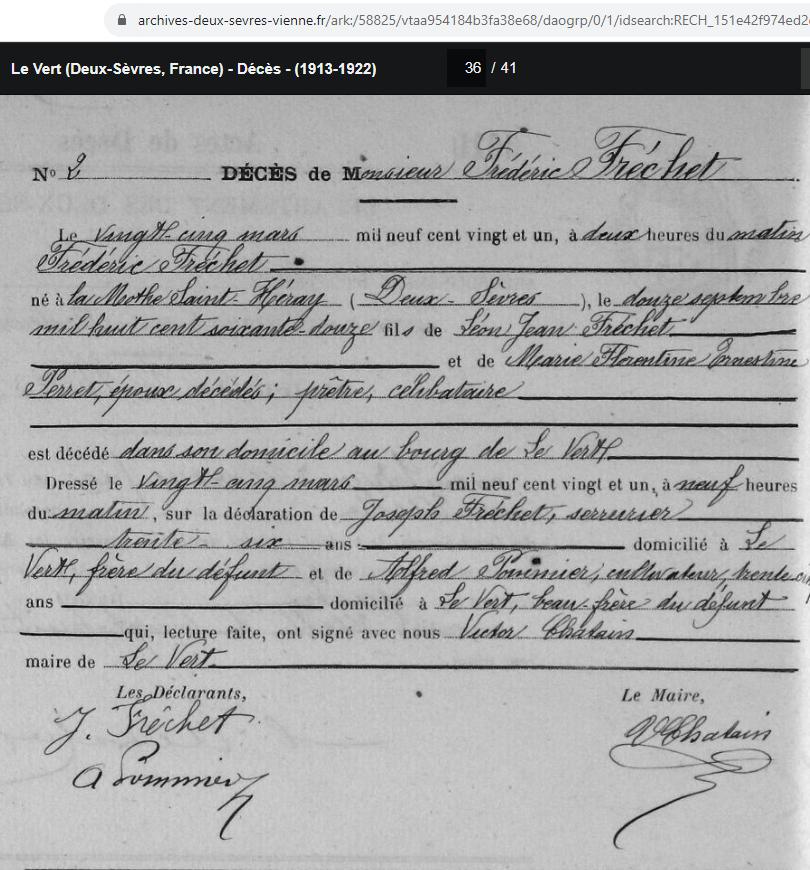 archives-deux-sevres-vienne.fr/ark:/58825/vtaa954184b3fa38e68/daogrp/0/1/idsearch:RECH_151e42f974ed2
Le Vert (Deux-Sèvres, France) - Décès - (1913-1922)
36 / 41
No 2 DÉCÈS de Monsieur Frédéric Fréchet
Le vingt-cinq mars mil neuf cent vingt et un, à deux heures du matin
Frédéric Fréchet
né à la Mothe Saint-Héray (Deux-Sèvres), le douze septembre
mil huit cent soixante-douze fils de Léon Jean Fréchet
et de Marie Florentine Ernestine
Perret, époux décédés; prêtre, célibataire
est décédé dans son domicile au bourg de Le Vert
Dressé le vingt-cinq mars mil neuf cent vingt et un, à neuf heures
du matin, sur la déclaration de Joseph Fréchet, serrurier
trente-six ans domicilié à Le
Vert, frère du défunt et de Alfred Pommier, cultivateur, trente
ans domicilié à Le Vert, beau-frère du défunt
qui, lecture faite, ont signé avec nous Victor Chalain
maire de Le Vert
Les Déclarants,
Le Maire,
J. Fréchet
V Chalain
A Pommier